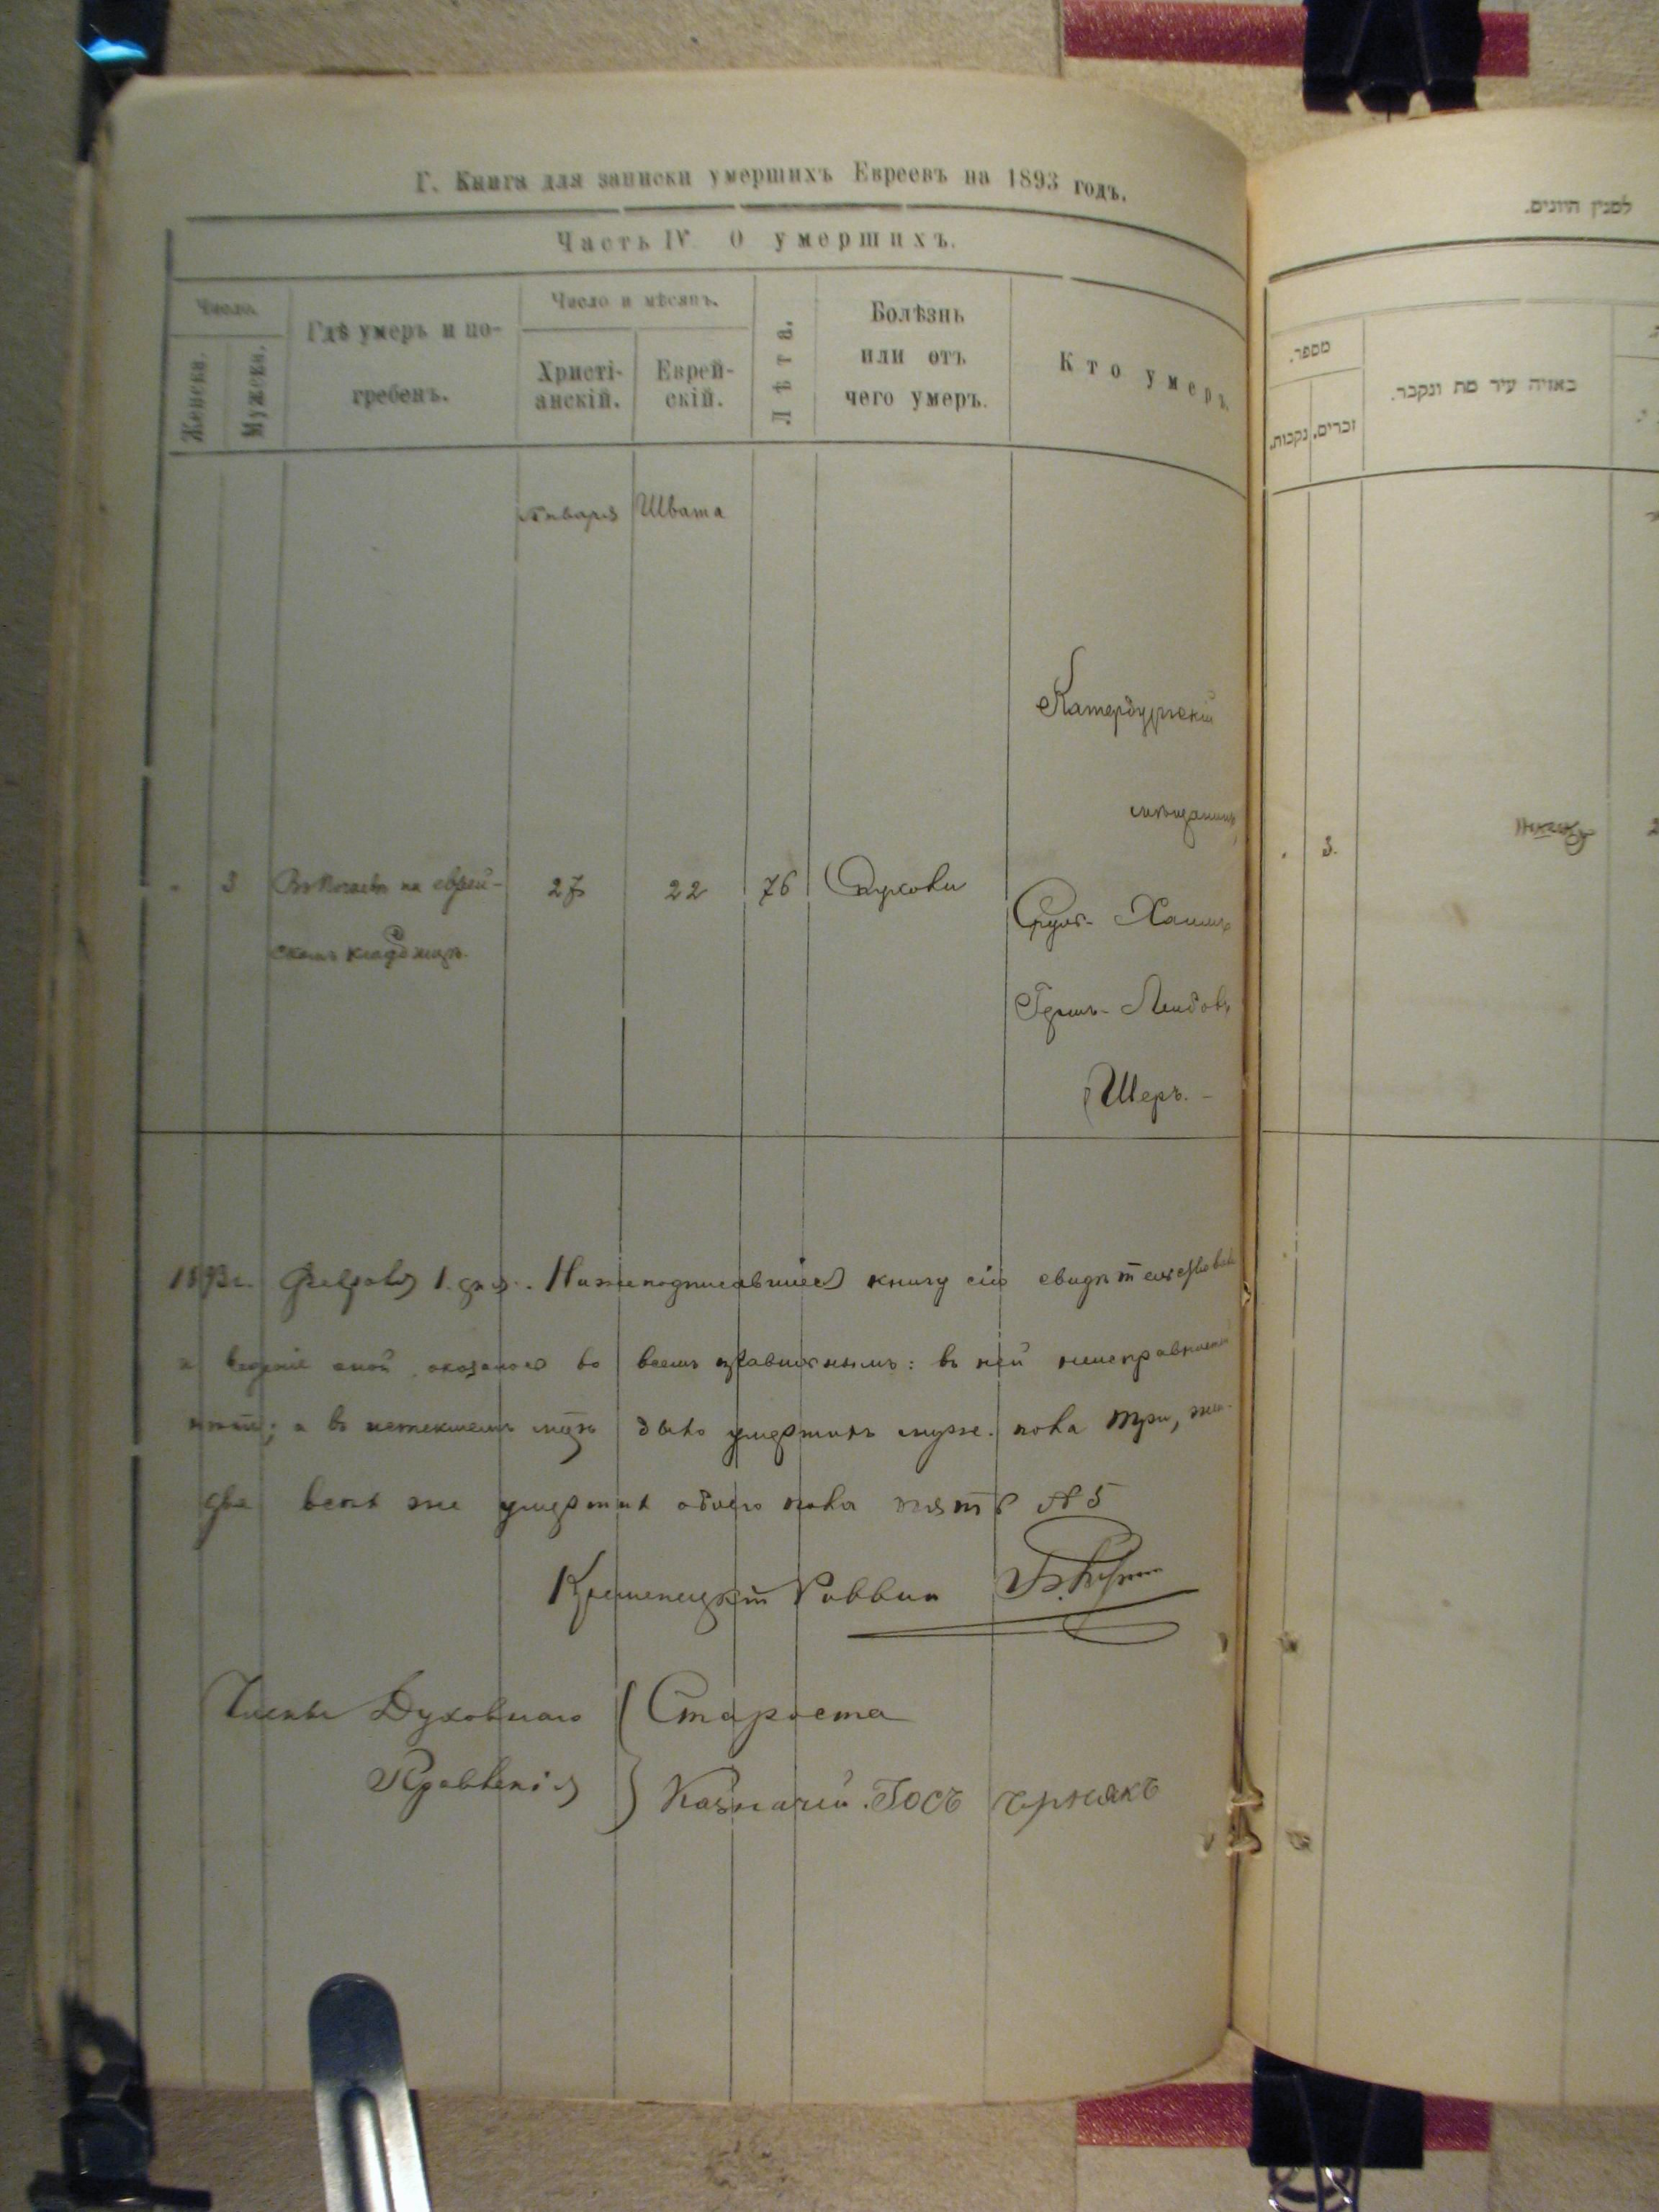 Г. Книга для записки умершихъ Евреевъ на 1893 годъ.
Часть IV О умершихъ.
Число.
Женска.
Мужеска.
Гдѣ умеръ и по-
гребенъ.
Число и мѣсяцъ.
Христі-
анскій.
Еврей-
скій.
Лѣта.
Болѣзнь
или отъ
чего умеръ.
Кто умеръ.
Января Швата
Катербургскій
мѣщанинъ
3 Въ Почаевѣ на еврей- 27 22 76
скомъ кладбищѣ.
Срулъ- Хаимъ
Гершъ- Лейбовъ
Шеръ. -
1893 г. Февраля 1. дня. Нижеподписавшіеся книгу сію свидѣтельствовали
и веденіе оной оказалось во всемъ правильнымъ: въ ней неисправностей
нѣтъ; а въ истекшемъ мцѣ было умершихъ муже. пола три, жен.
два всѣхъ же умершихъ обоего пола пять № 5
Кременецкій Раввинъ
Члены Духовнаго ( Староста
Правленія ) Казначей. Іосъ чрнякъ
לסנין היונים.
מספר.
זכרים.
נקבות.
באיזה עיר מת ונקבר.
3.